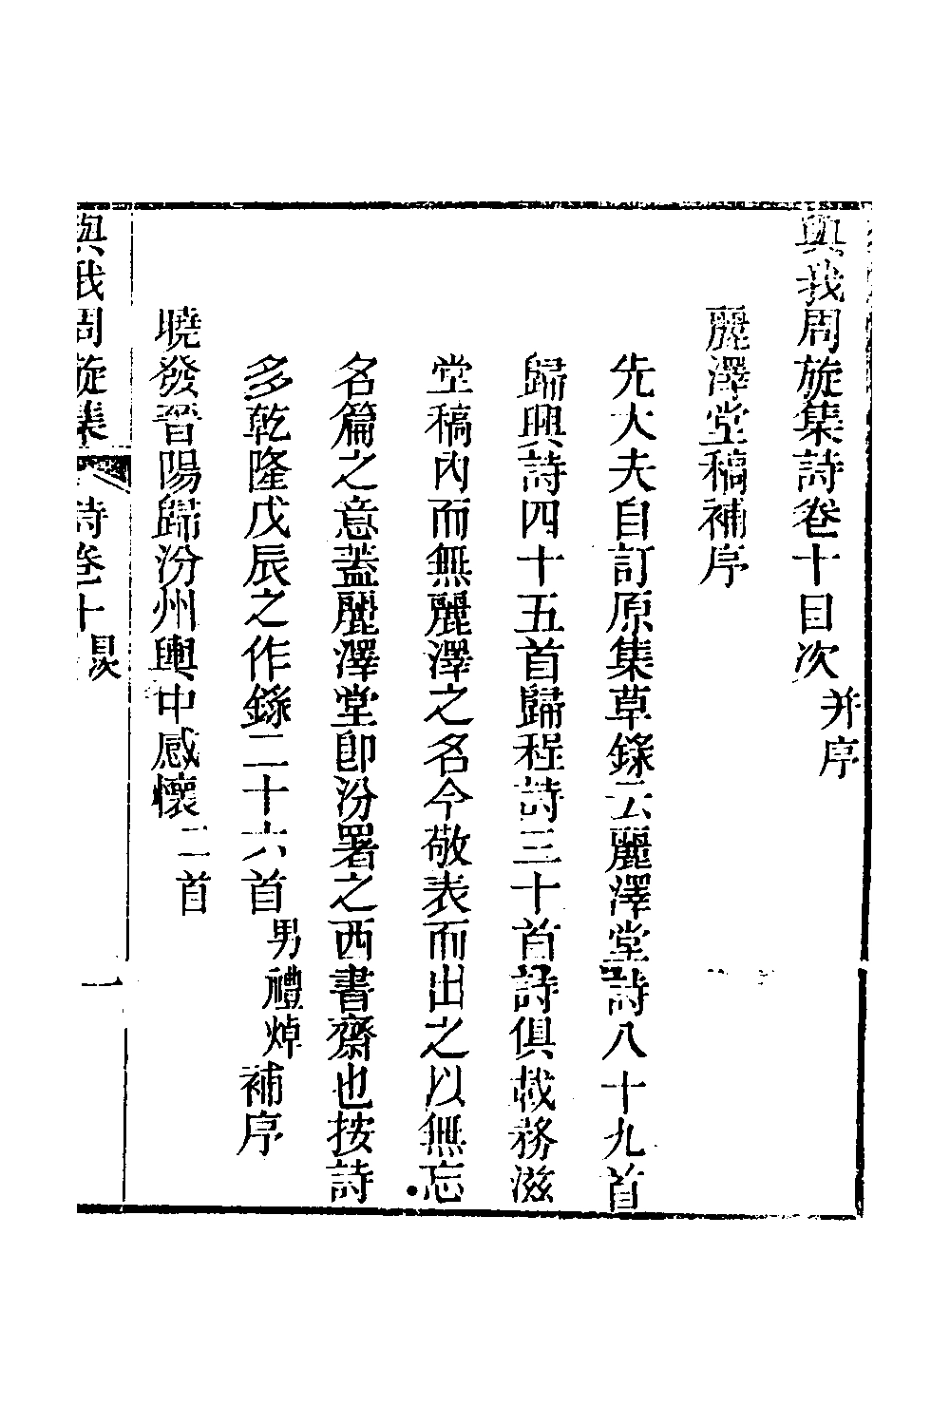 與我周旋集詩卷十目次 并序
麗澤堂稿補序
先大夫自訂原集草錄云麗澤堂詩八十九首
歸興詩四十五首歸程詩三十首詩俱載務滋
堂稿內而無麗澤之名今敬表而出之以無忘
名篇之意蓋麗澤堂卽汾署之西書齋也按詩
多乾隆戊辰之作錄二十六首 男禮焯 補序
曉發晉陽歸汾州輿中感懷 二首
與我周旋集 詩卷十 一